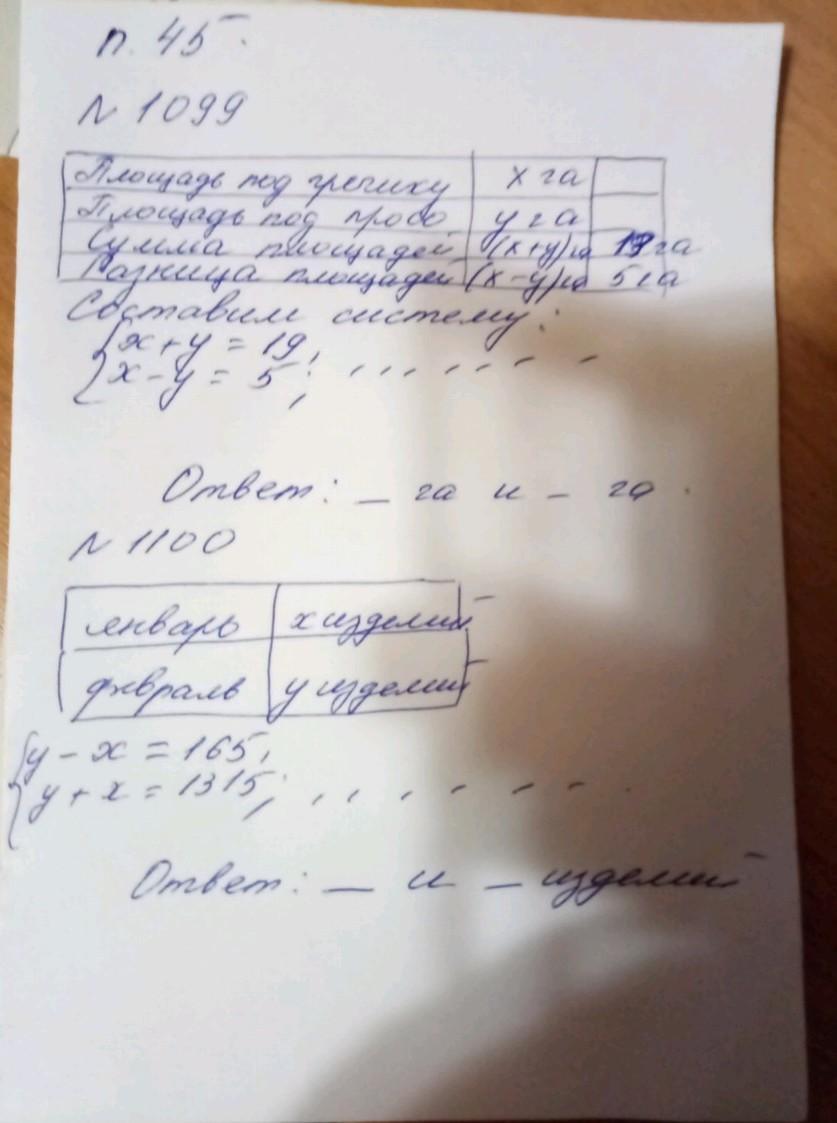 п. 45.
N 1099
Площадь под гречиху x га
Площадь под просо y га
Сумма площадей (x+y)га 19 га
Разница площадей (x-y)га 5 га
Составим систему:
{x+y = 19,
x-y = 5;
Ответ: _ га и _ га.
N 1100
январь x изделий
февраль y изделий
{y-x = 165,
y+x = 1315;
Ответ: _ и _ изделий